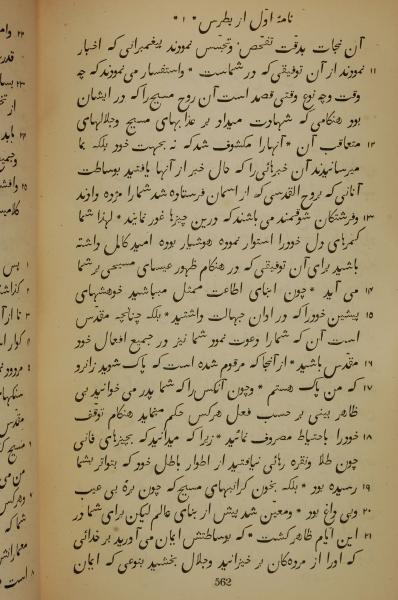 نامهٔ اوّل از پطرس * ۱ *
آن نجات بدقت تفحّص و تجسّس نمودند پیغمبرانی که اخبار
۱۱ نمودند از آن توفیقی که در شماست * و استفسار می نمودند که چه
وقت و چه نوع وقتی قصد است آن روح مسیح را که در ایشان
بود هنگامی که شهادت میداد بر عذابهای مسیح و جلالهای
۱۲ متعاقب آن * آنها را مکشوف شد که نه بجهت خود بلکه بما
میرسانیدند آن خبرهائی را که حال خبر از آنها یافتید بوساطت
آنانی که بروح القدسی که از آسمان فرستاده شد شما را مژده دادند
۱۳ و فرشتگان شوقمند می باشند که درین چیزها غور نمایند * لهذا شما
کمرهای دل خود را استوار نموده هوشیار بوده امید کامل داشته
باشید برای آن توفیقی که در هنگام ظهور عیسای مسیحی بر شما
۱۴ می آید * چون ابنای اطاعت ممثل مباشید خوهشهای
۱۵ پیشین خود را که در اوان جهالت داشتید * بلکه چنانچه مقدّس
است آن که شما را دعوت نمود شما نیز در جمیع افعال خود
۱۶ مقدّس باشید * از آنجا که مرقوم شده است که پاک شوید زانرو
۱۷ که من پاک هستم * و چون آنکس را که شما پدر می خوانید بی
ظاهر بینی بر حسب فعل هر کس حکم مینماید هنگام توقّف
۱۸ خود را باحتیاط مصروف نمائید * زیرا که میدانید که بچیزهای فانی
چون طلا و نقره رهائی نیافتید از اطوار باطل خود که بتواتر بشما
۱۹ رسیده بود * بلکه بخون گرانبهای مسیح که چون برهٔ بی عیب
۲۰ و بی داغ بود * و معین شد پیش از بنای عالم لیکن برای شما در
۲۱ این ایّام ظاهر گشت * که بوساطتش ایمان می آورید بر خدائی
که او را از مردهکان بر خیزانید و جلال بخشید بنوعی که ایمان
562